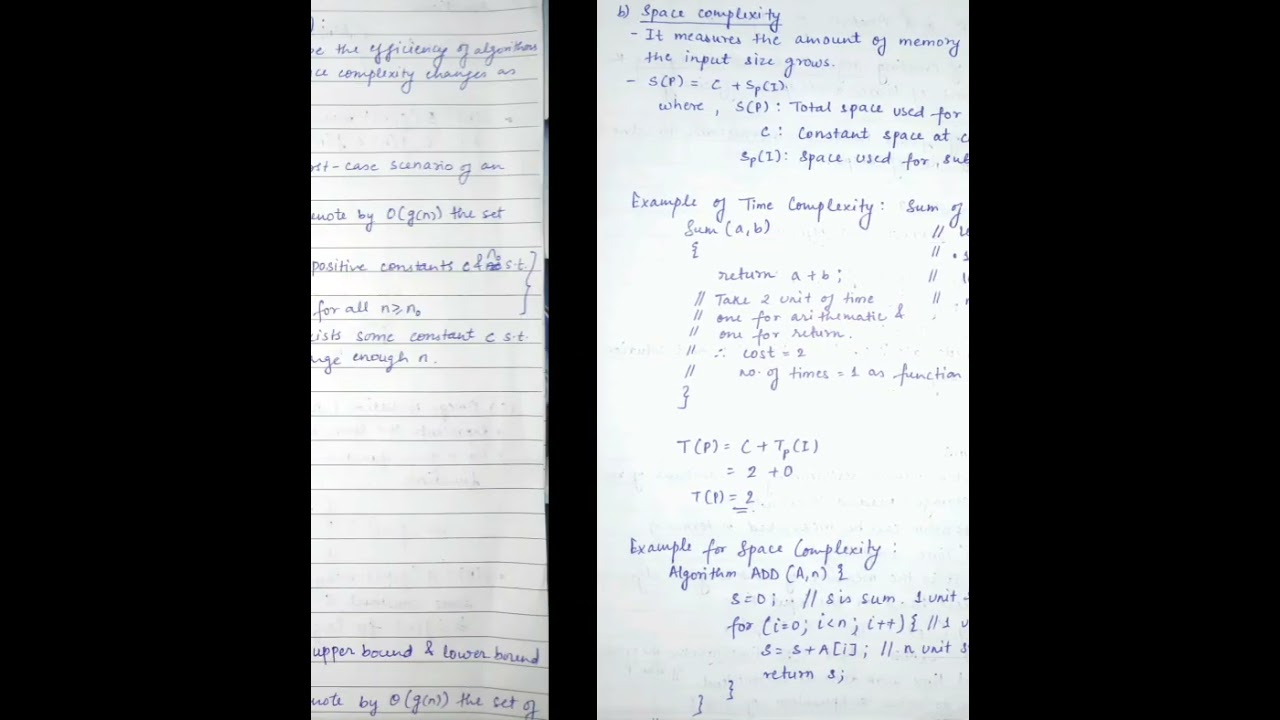 ) :
be the efficiency of algorithms
ce complexity changes as
rst-case scenario of an
enote by O(g(n)) the set
positive constants c & n₀ s.t.
for all n ≥ n₀
ists some constant c s.t.
enough n.
upper bound & lower bound
note by Θ(g(n)) the set of
b) Space complexity
- It measures the amount of memory
the input size grows.
- S(P) = C + Sp(I)
where, S(P) : Total space used for
C : Constant space at c
Sp(I) : Space used for sub
Example of Time Complexity : Sum of
Sum (a,b) //
{ //
return a + b ; //
// Take 2 unit of time //
// one for arithematic &
// one for return.
// ∴ cost = 2
// no. of times = 1 as function
}
T(P) = C + Tp(I)
= 2 + 0
T(P) = 2
Example for Space Complexity :
Algorithm ADD (A,n) {
S = 0 ; // s is sum. 1 unit
for (i=0; i<n; i++) { // 1 u
S = S + A[i] ; // n unit s
return s;
}
}